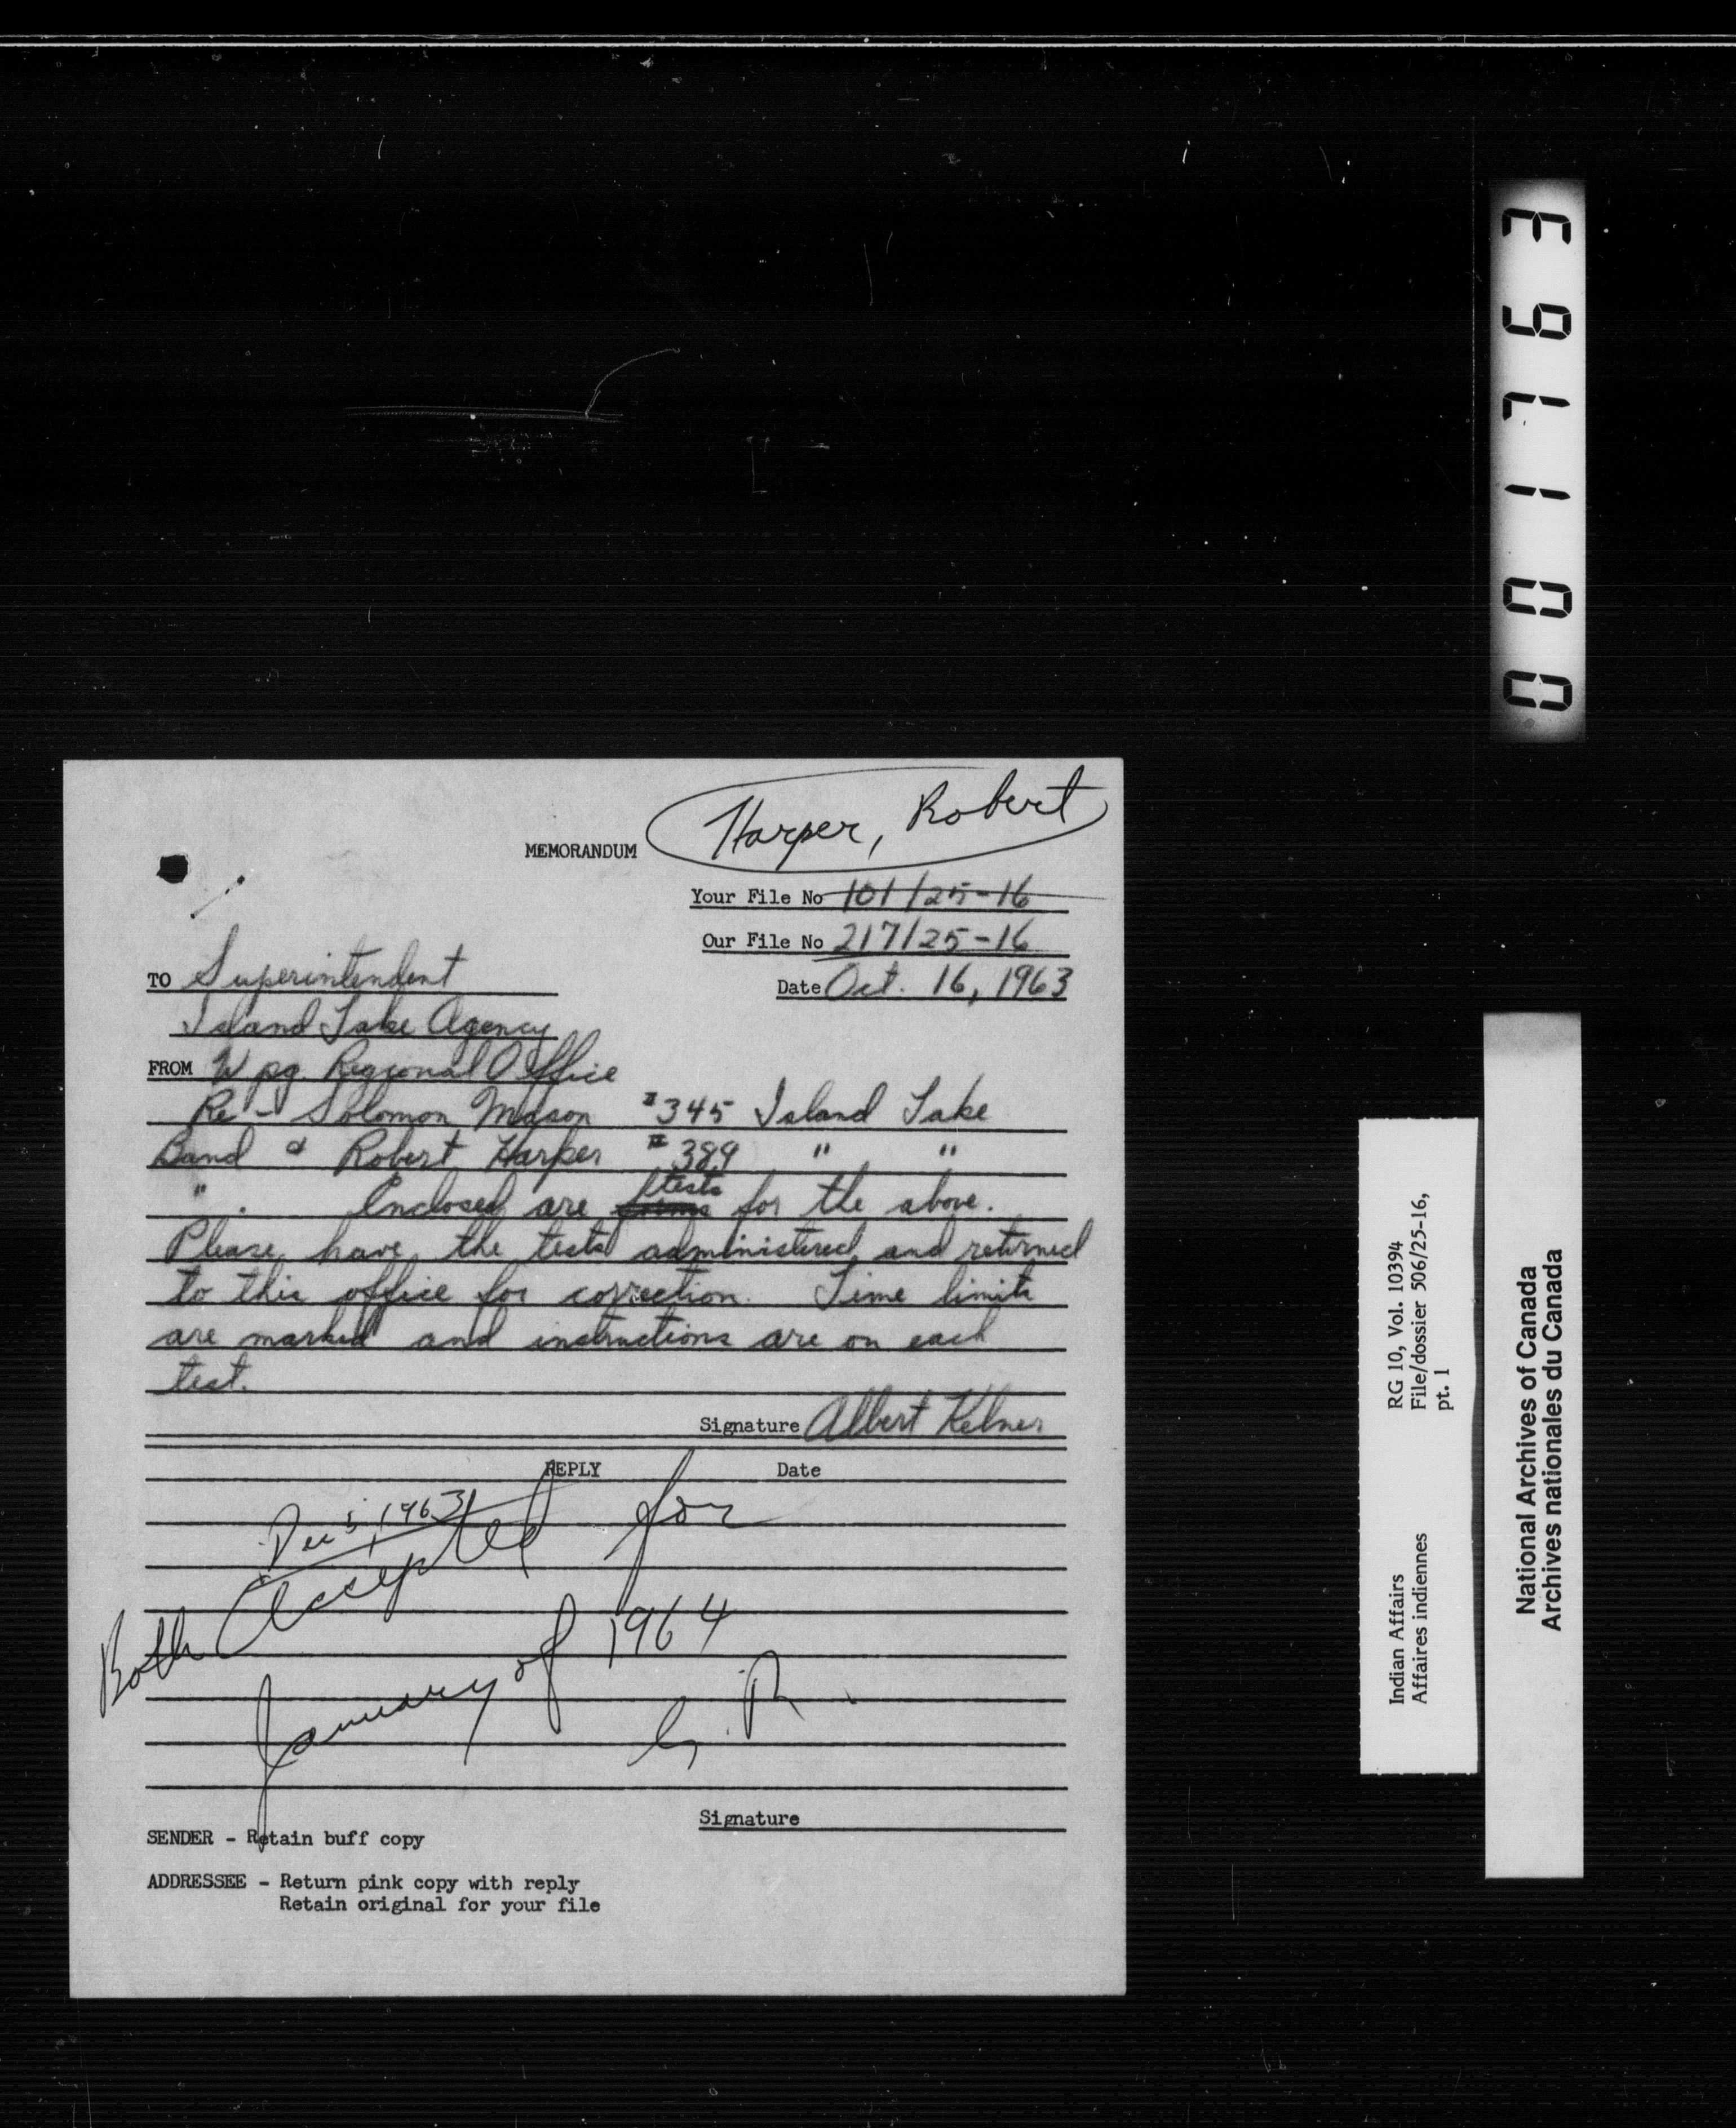 Harper, Robert
MEMORANDUM
Your File No 101/25-16
Our File No 217/25-16
TO Superintendent
Date Oct. 16, 1963
Island Lake Agency
FROM Wpg. Regional Office
Re - Solomon Mason #345 Island Lake
Band & Robert Harper #389 " "
" . Enclosed are forms tests for the above.
Please have the tests administered and returned
to this office for correction. Time limits
are marked and instructions are on each
test.
Signature Albert Kelner
REPLY Date
Dec 5, 1963
Both Accepted for
January of 1964
G. R.
Signature
SENDER - Retain buff copy
ADDRESSEE - Return pink copy with reply
Retain original for your file
001763
Indian Affairs RG 10, Vol. 10394
Affaires indiennes File/dossier 506/25-16,
pt. 1
National Archives of Canada
Archives nationales du Canada